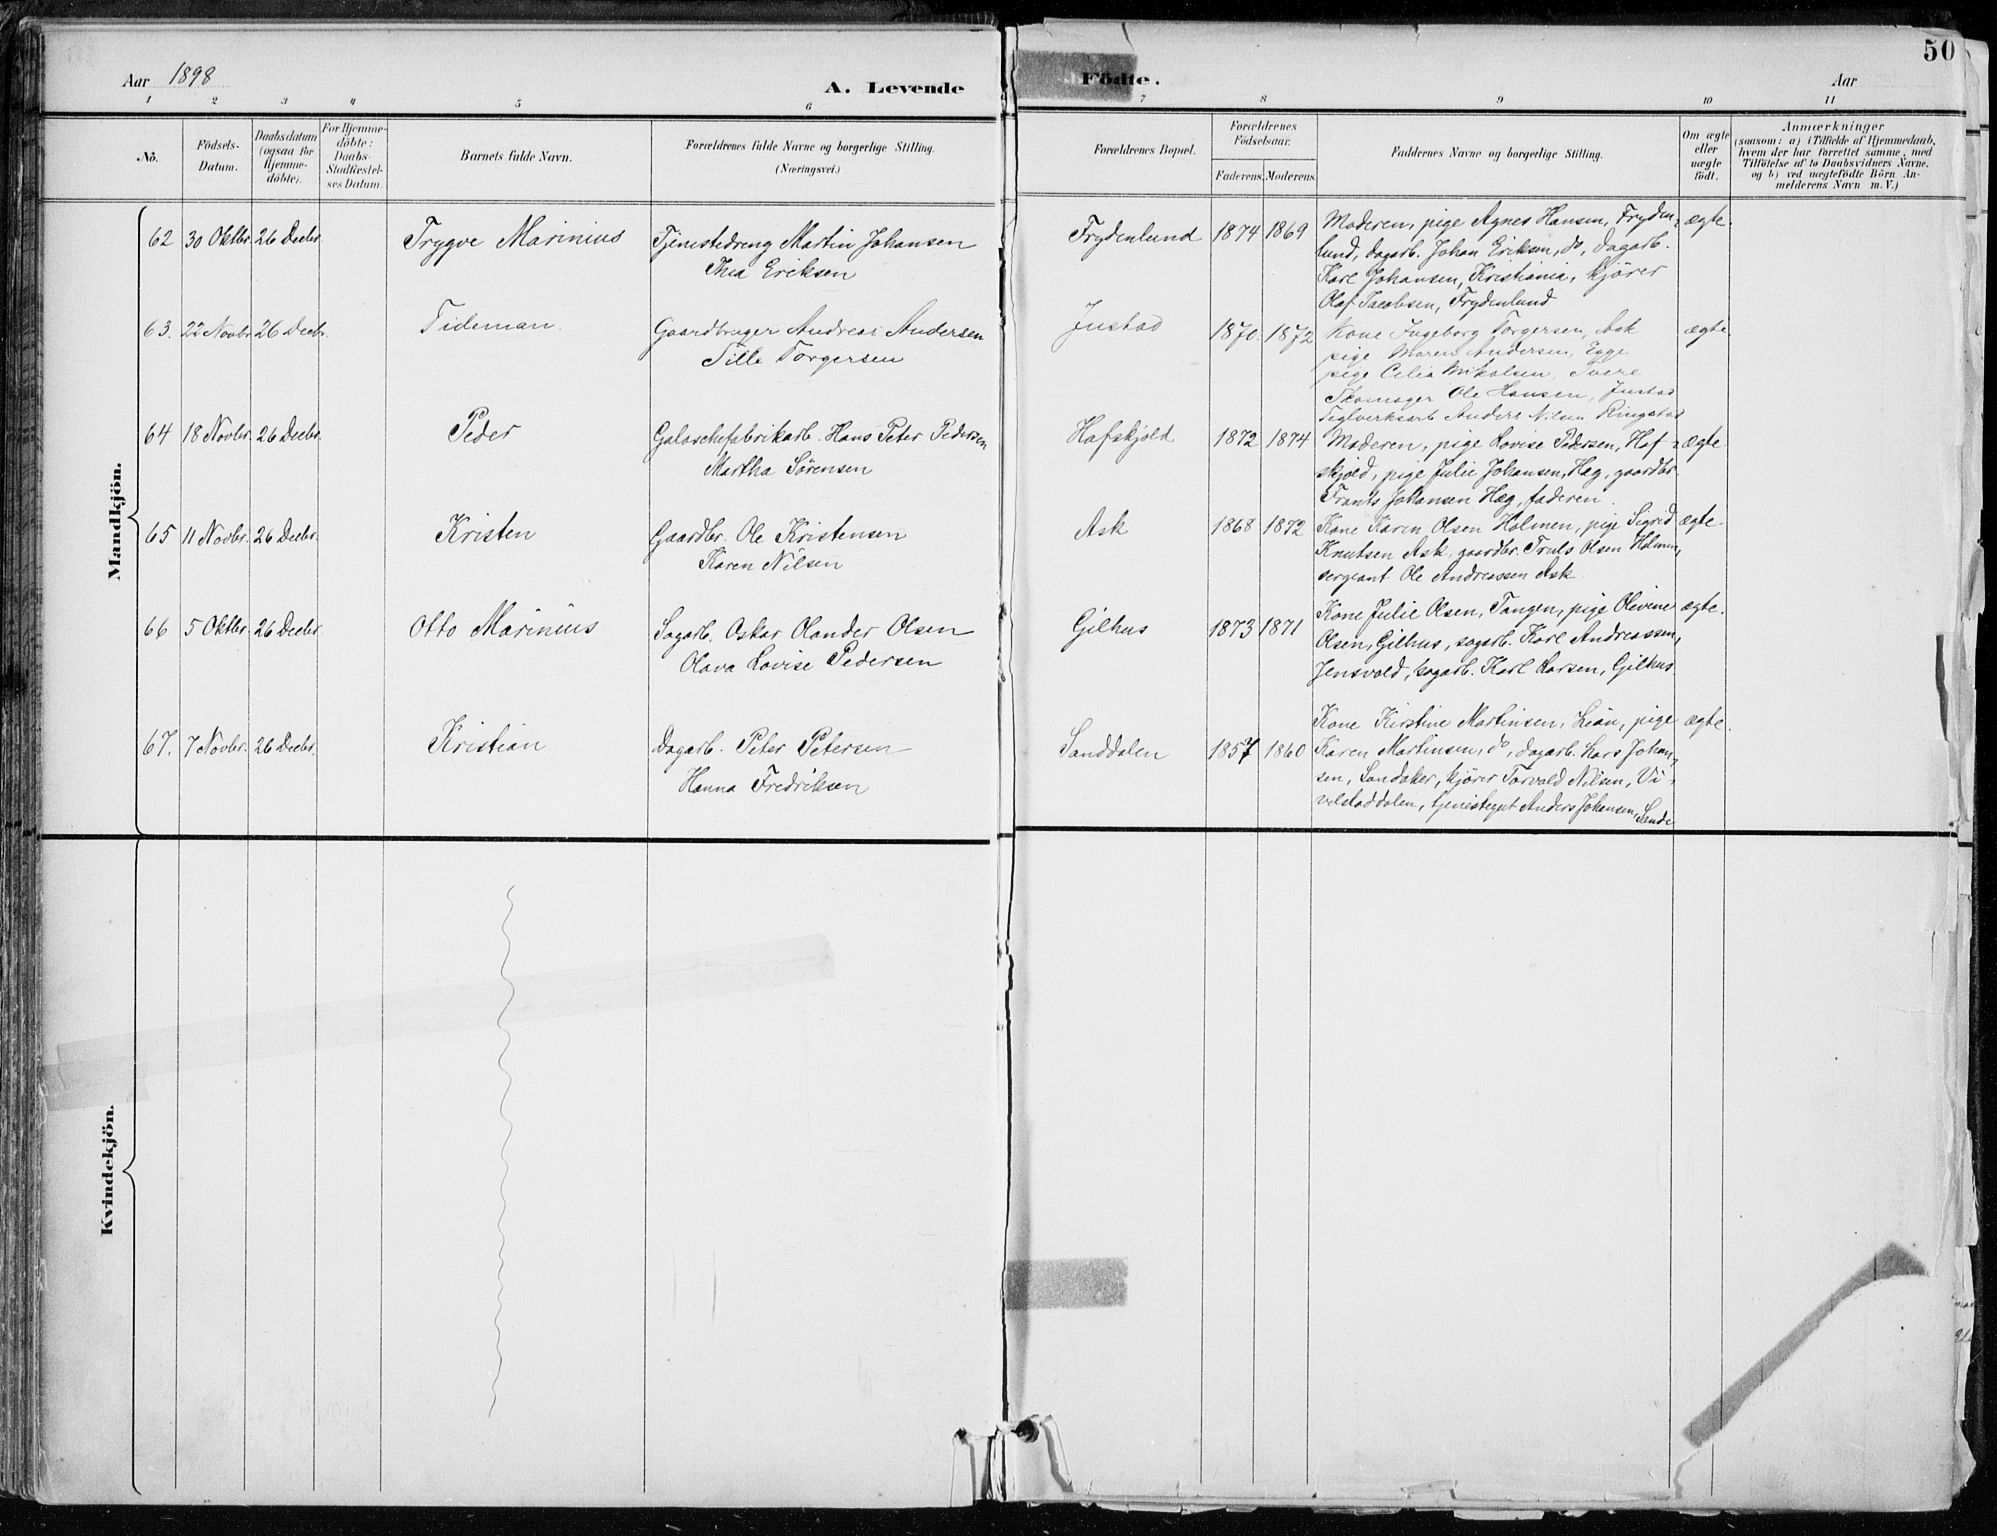 50
Aar 1898
A. Levende
Födte.
Aar
1 2 3 4 5 6 7 8 9 10 11
No.
Födsels-
Datum.
Daabsdatum
(ogsaa for
Hjemme-
döbte).
For Hjemme-
döbte:
Daabs-
Stadfæstel-
ses Datum.
Barnets fulde Navn.
Forældrenes fulde Navne og borgerlige Stilling.
(Næringsvei.)
Forældrenes Bopæl.
Forældrenes
Födselsaar.
Faderens. Moderens.
Faddernes Navne og borgerlige Stilling.
Om ægte
eller
uægte
födt.
Anmærkninger
(saasom: a) i Tilfælde af Hjemmedaab,
hvem der har forrettet samme, med
Tilföielse af to Daabsvidners Navne,
og b) ved uægtefödte Börn An-
melderens Navn m. V.)
Mandkjön.
62 30 Oktbr. 26 Decbr. Trygve Marinius Tjenestedreng Martin Johansen
Thea Eriksen
Frydenlund 1874 1869 Moderen, pige Agnes Hansen, Fryden- ægte.
lund, dagarb. Johan Eriksen, do, dagarb.
Karl Johansen, Kristiania, kjører
Olaf Jacobsen, Frydenlund
63. 22 Novbr. 26 Decbr. Tideman. Gaardbruger Andreas Andersen
Tille Torgersen
Justad 1870. 1872 Kone Ingeborg Torgersen, Ask ægte.
pige Maren Andersen, Egge
pige Celia Mikalsen, Tvere
Skomager Ole Hansen, Justad
Teglverksarb Anders Nilsen Ringstad
64 18 Novbr. 26 Decbr. Peder Galoschefabrikarb. Hans Peter Pedersen
Martha Sørensen
Hafskjold 1872 1874 Moderen, pige Lovise Pedersen, Haf- ægte.
skjold, pige Julie Johansen, Hæg, gaardbr.
Frants Johansen Hæg, faderen.
65 11 Novbr. 26 Decbr. Kristen Gaardbr. Ole Kristensen
Karen Nilsen
Ask 1868 1872 Kone Karen Olsen Holmen, pige Sigrid ægte.
Knutsen Ask, gaardbr. Truls Olsen Holmen,
sergeant Ole Andreassen Ask
66 5 Oktbr. 26 Decbr. Otto Marinius Sagarb. Oskar Olander Olsen
Olava Lovise Pedersen
Gilhus 1873 1871 Kone Julie Olsen, Tangen, pige Olevine ægte.
Olsen, Gilhus, sagarb. Karl Andreassen,
Jensvold, sagarb. Karl Larsen, Gilhus
67. 7 Novbr. 26 Decbr. Kristian Dagarb. Peter Petersen
Hanna Fredriksen
Sanddalen 1857 1860 Kone Kirstine Martinsen, Lian, pige ægte.
Karen Martinsen, do, dagarb. Lars Johan-
sen, Landaker, kjører Torvald Nilsen, Vi-
velstaddalen, tjenestegut Anders Johansen, Sande
Kvindekjön.